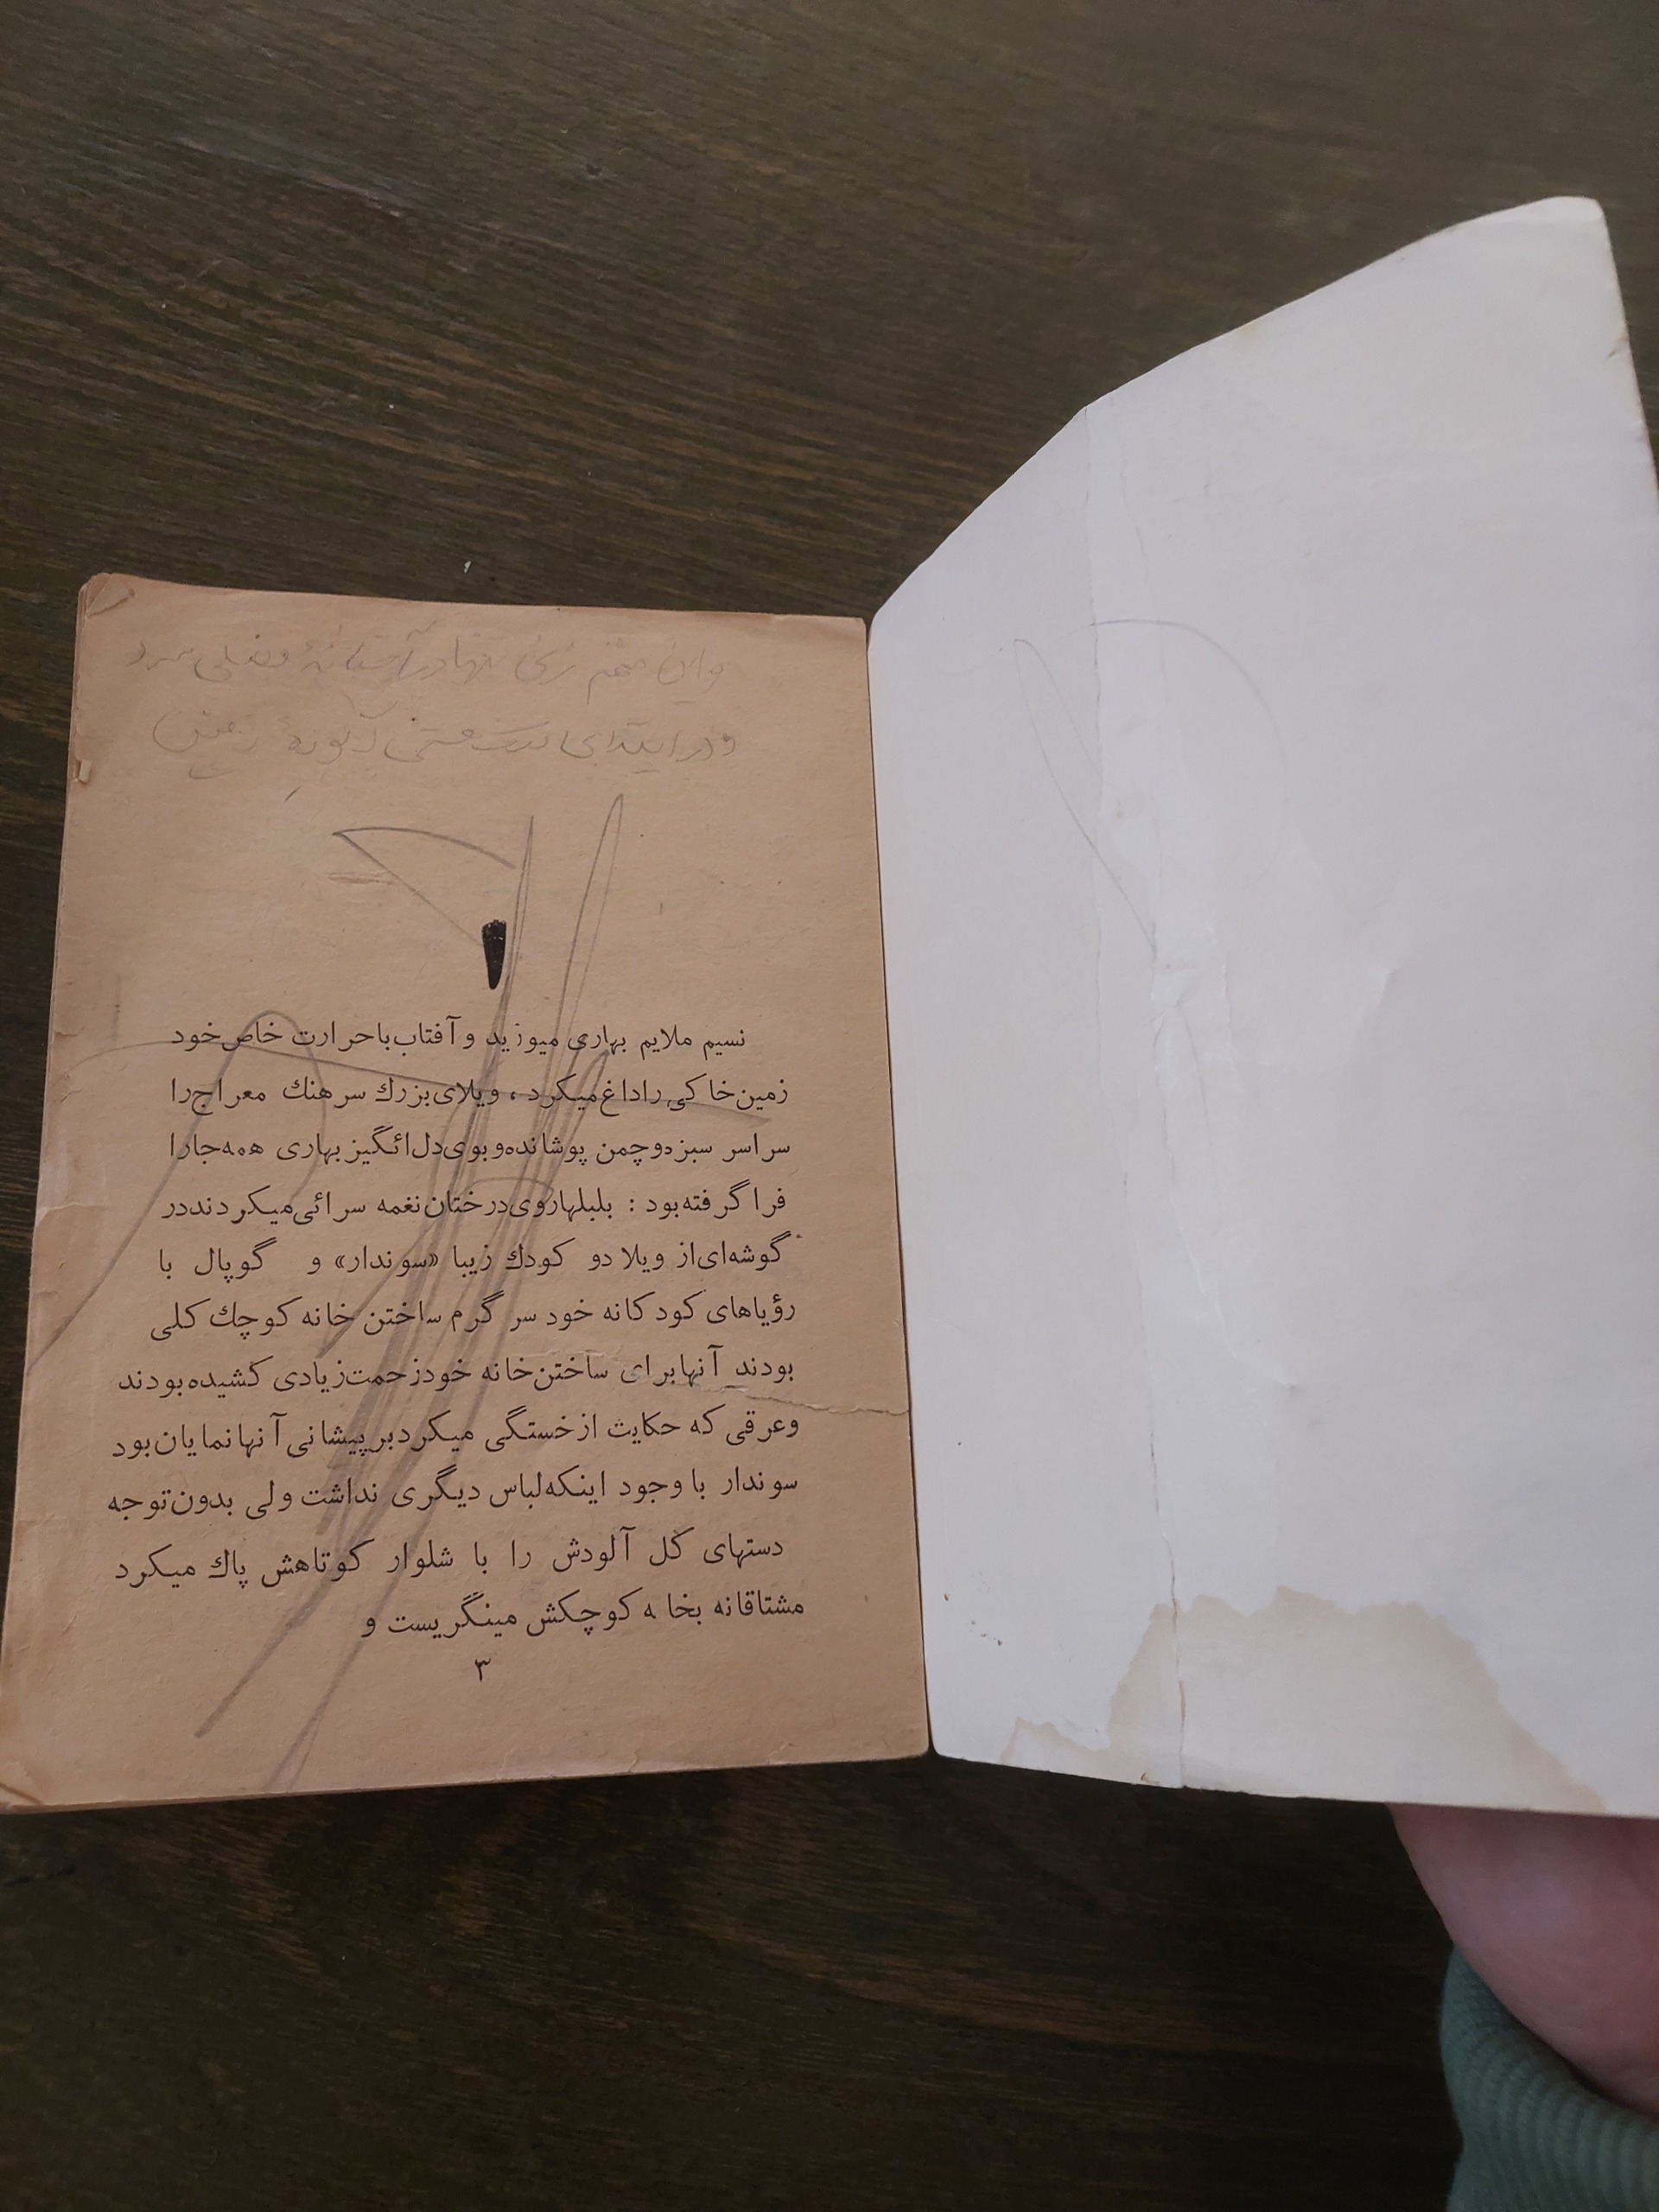 واین منم زنی تنها در آستانهٔ فصلی سرد
و در ابتدای هستی آلودهٔ زمین
۱
نسیم ملایم بهاری میوزید و آفتاب با حرارت خاص خود
زمین خاکی را داغ میکرد ، ویلای بزرك سرهنك معراج را
سراسر سبزه و چمن پوشانده و بوی دل انگیز بهاری همه جا را
فرا گرفته بود : بلبلها روی درختان نغمه سرائی میکردند در
گوشه‌ای از ویلا دو کودك زیبا «سوندار» و گوپال با
رؤیاهای کودکانه خود سرگرم ساختن خانه کوچك کلی
بودند آنها برای ساختن خانه خود زحمت زیادی کشیده بودند
وعرقی که حکایت از خستگی میکرد بر پیشانی آنها نمایان بود
سوندار با وجود اینکه لباس دیگری نداشت ولی بدون توجه
دستهای کل آلودش را با شلوار کوتاهش پاك میکرد
مشتاقانه بخا ه کوچکش مینگریست و
۳